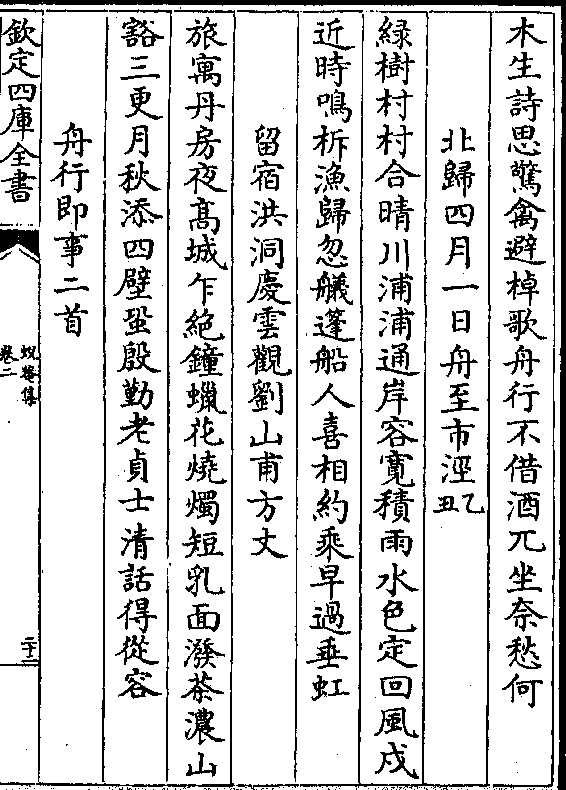 木生詩思驚禽避棹歌舟行不借酒兀坐奈愁何
北歸四月一日舟至市涇乙丑
緑樹村村合晴川浦浦通岸容寛積雨水色定回風戍
近時鳴柝漁歸忽艤蓬船人喜相約乘早過垂虹
留宿洪洞慶雲觀劉山甫方丈
旅寓丹房夜髙城乍絶鐘蠟花燒燭短乳面潑茶濃山
豁三更月秋添四壁蛩殷勤老貞士清話得從容
舟行即事二首
欽定四庫全書
蛻菴集
卷二
二十二